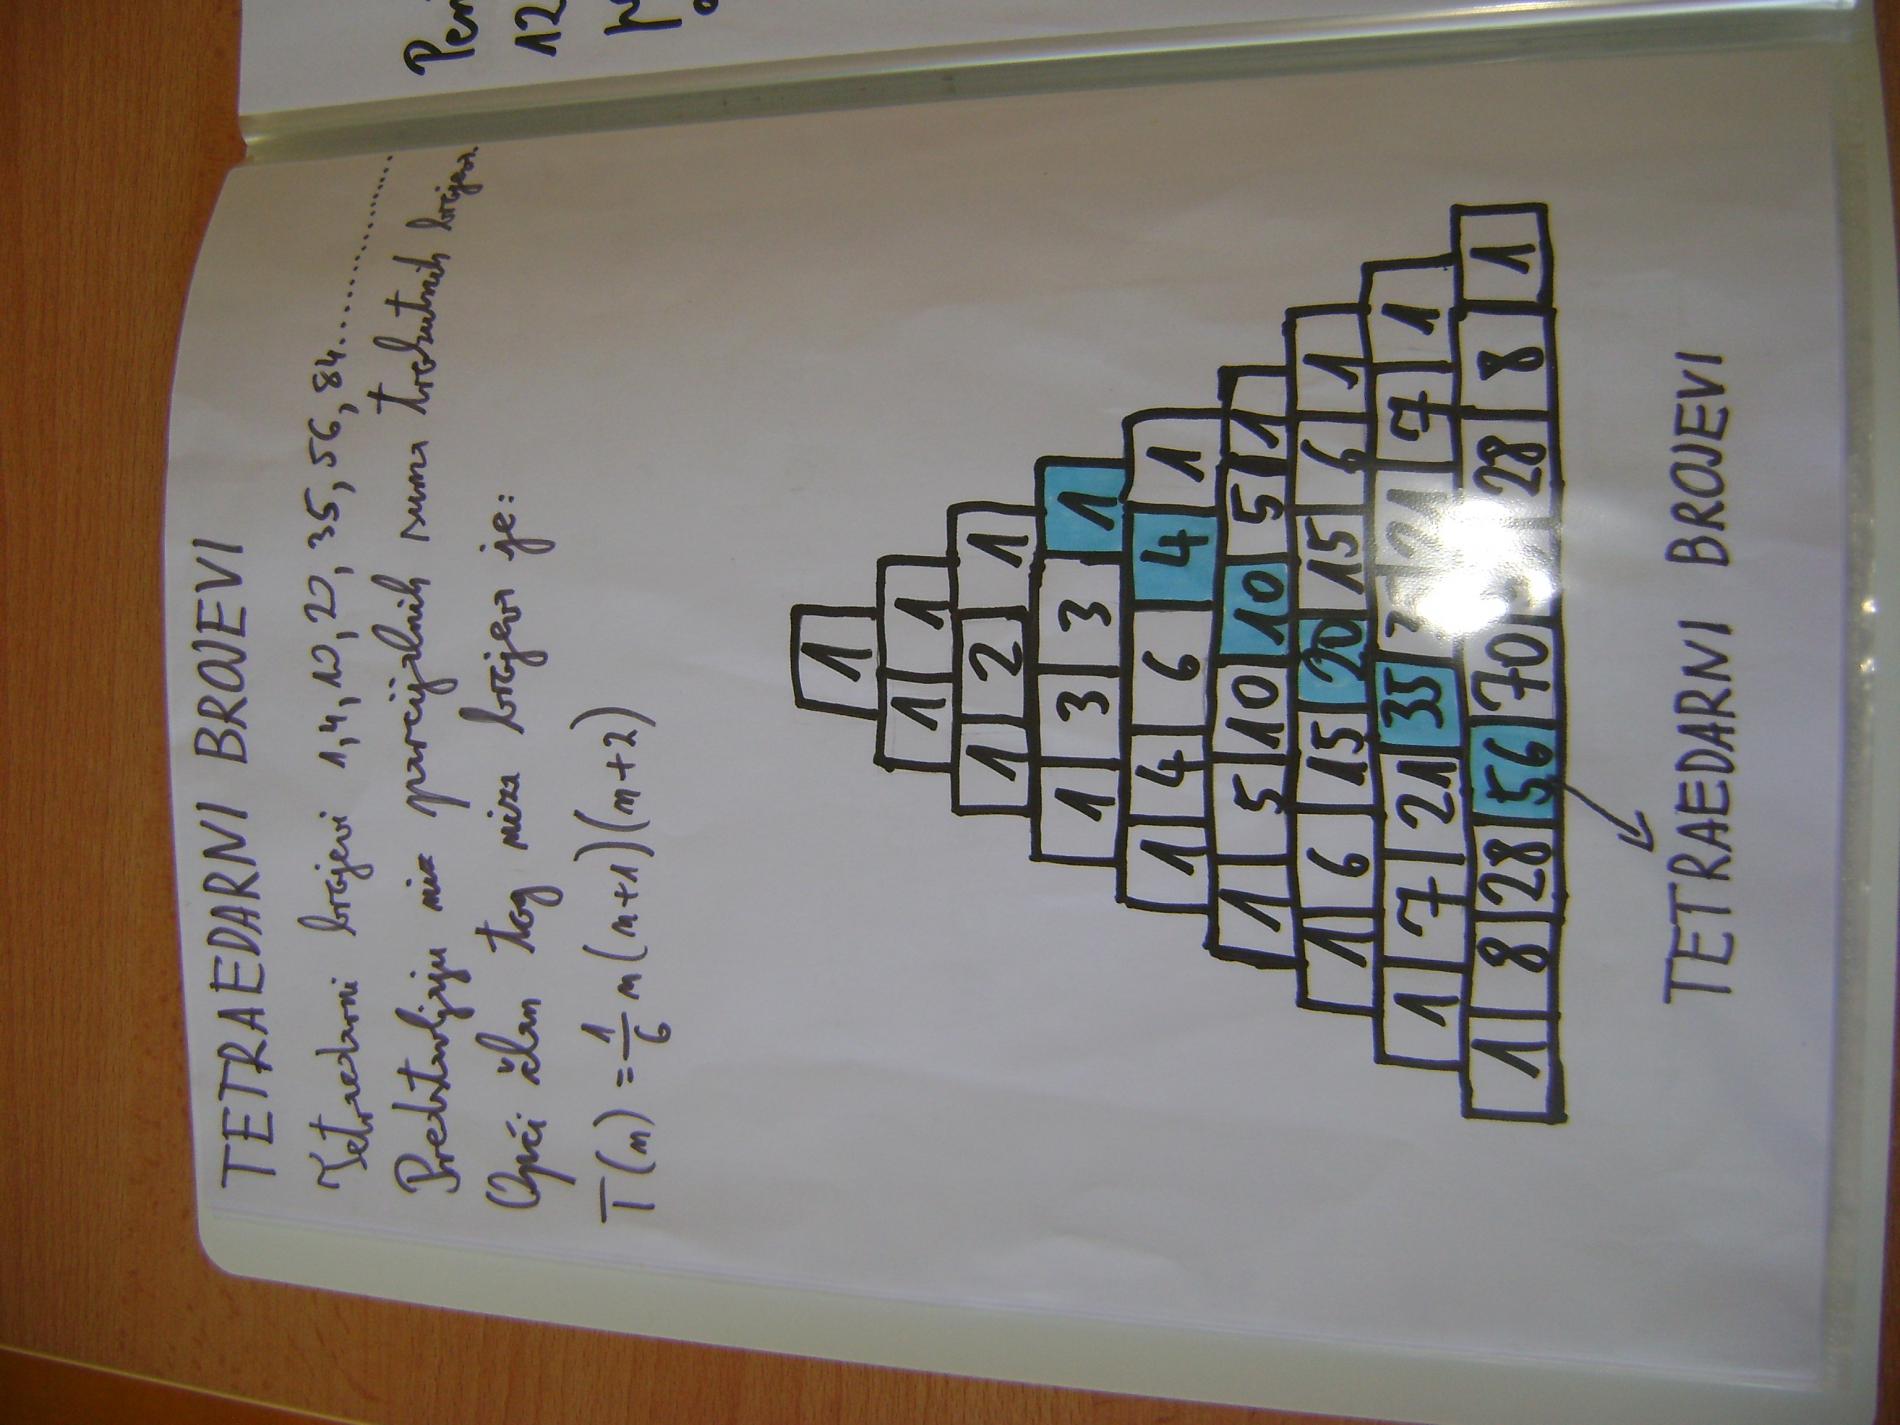 TETRAEDARNI BROJEVI
Tetraedarni brojevi 1, 4, 10, 20, 35, 56, 84..............
Predstavljaju niz parcijalnih suma trokutnih brojeva.
Opći član tog niza brojeva je:
T(n) = 1/6 n(n+1)(n+2)
1
1 1
1 2 1
1 3 3 1
1 4 6 4 1
1 5 10 10 5 1
1 6 15 20 15 6 1
1 7 21 35 3 21 7 1
1 8 28 56 70 28 8 1
TETRAEDARNI BROJEVI
12